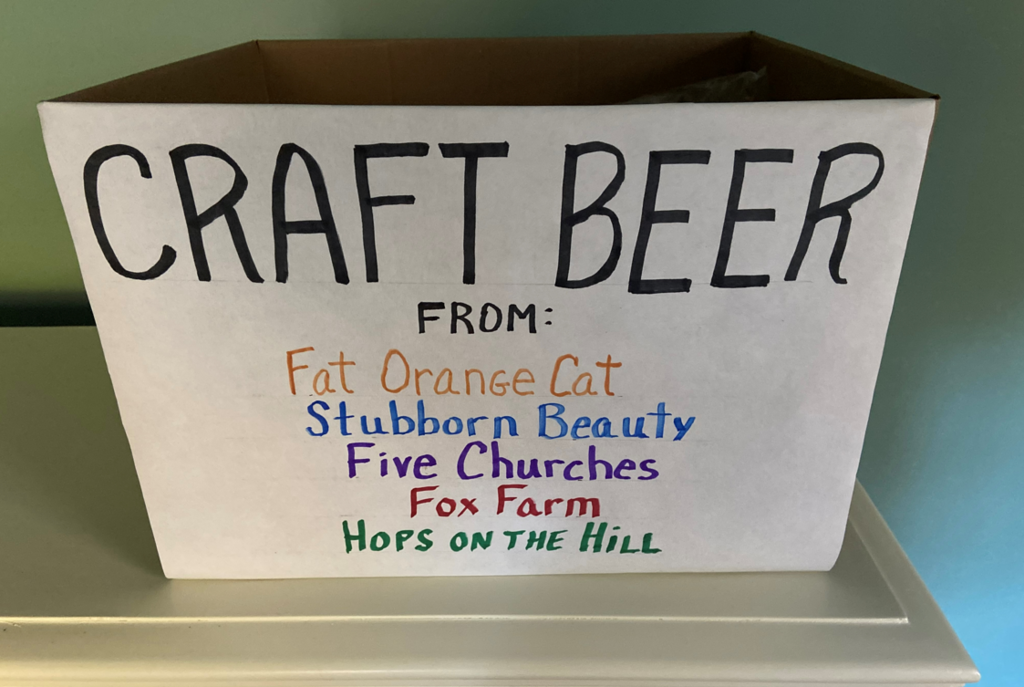 CRAFT BEER
FROM:
Fat Orange Cat
Stubborn Beauty
Five Churches
Fox Farm
HOPS ON THE HILL